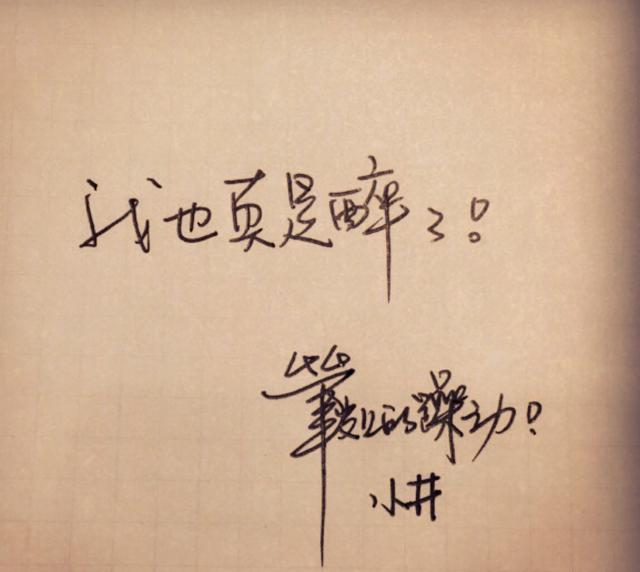 我也真是醉了!
筆的躁动!
小井